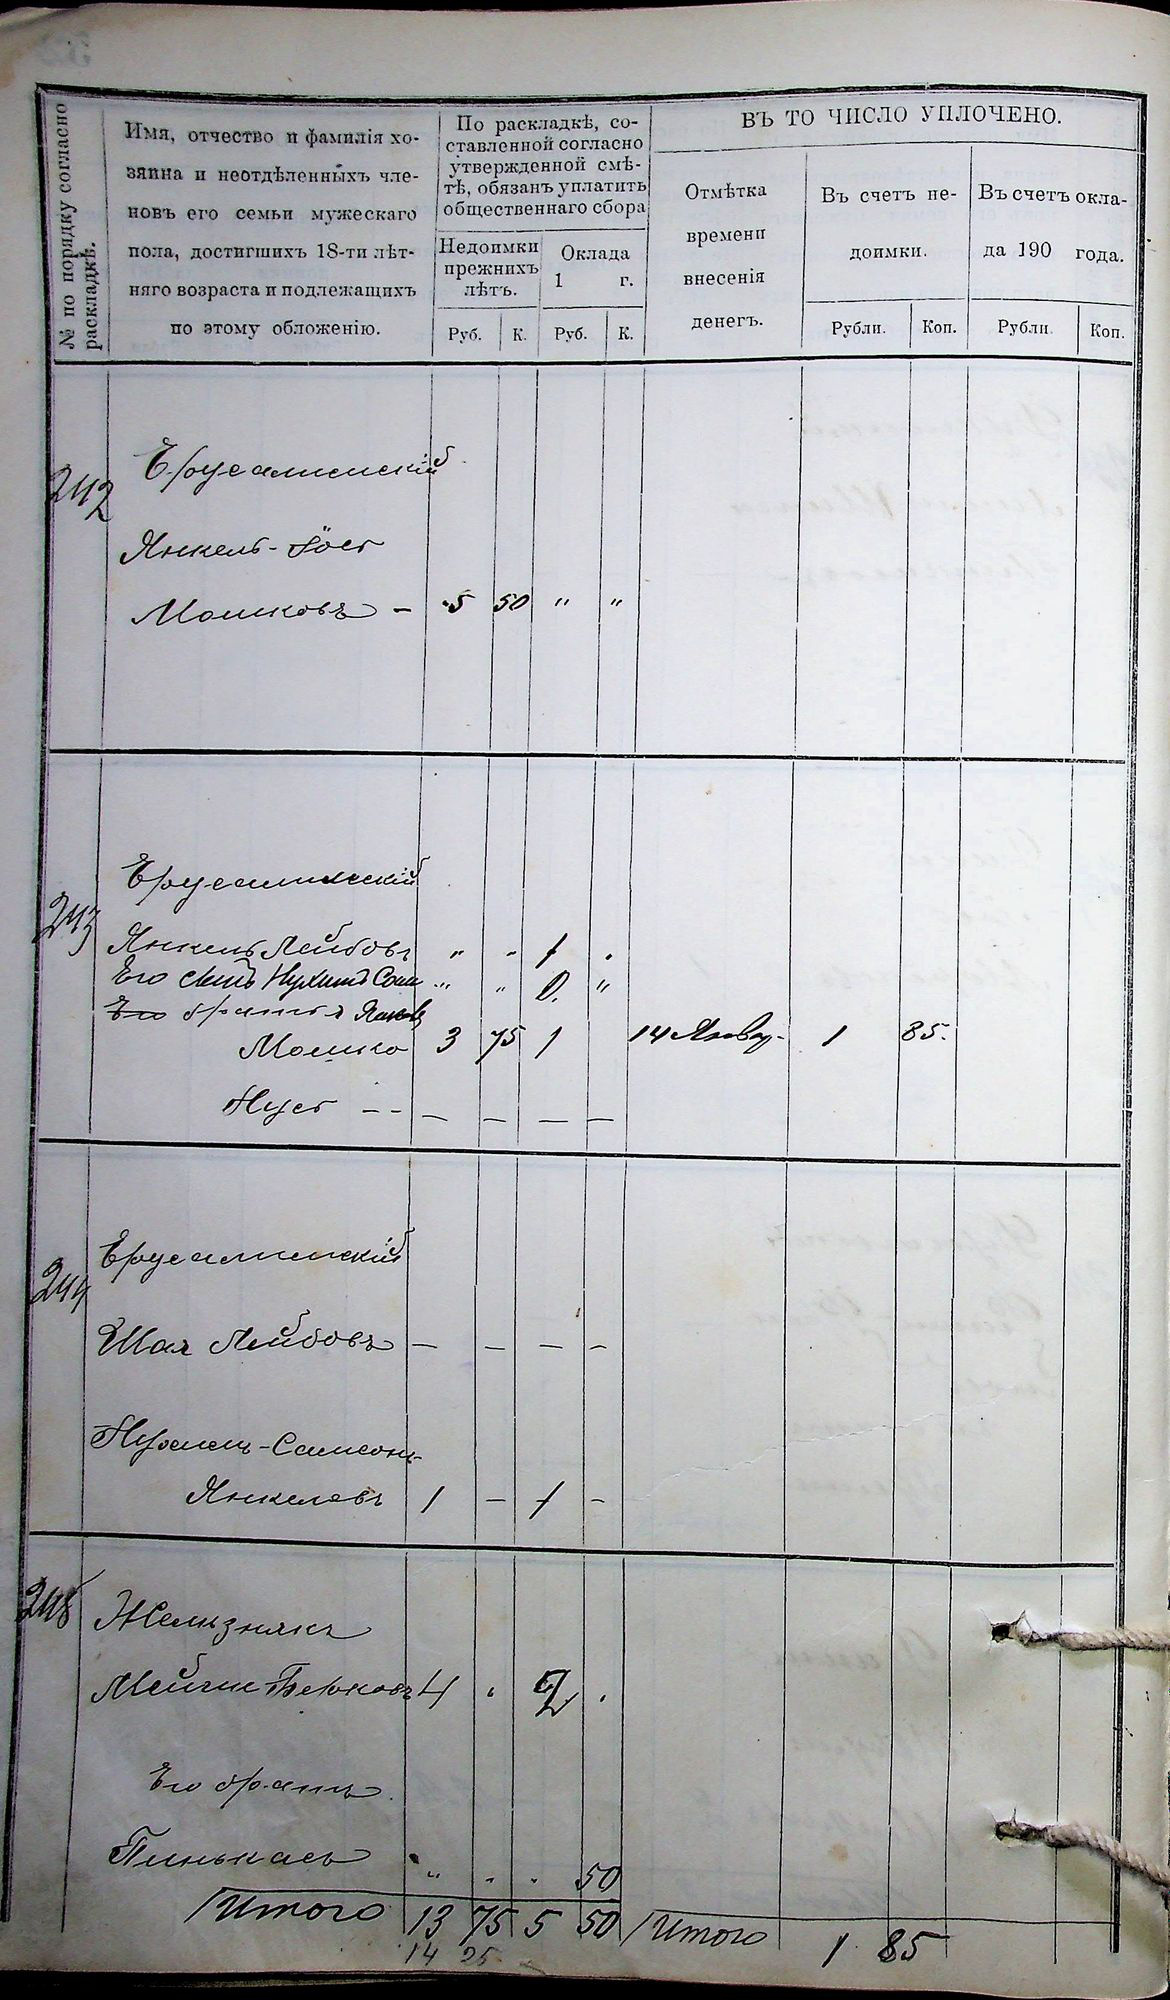 № по порядку согласно
раскладкѣ.
Имя, отчество и фамилія хо-
зяина и неотдѣленныхъ чле-
новъ его семьи мужескаго
пола, достигшихъ 18-ти лѣт-
няго возраста и подлежащихъ
по этому обложенію.
По раскладкѣ, со-
ставленной согласно
утвержденной смѣ-
тѣ, обязанъ уплатить
общественнаго сбора
Недоимки
прежнихъ
лѣтъ.
Оклада
1 г.
Руб. К. Руб. К.
ВЪ ТО ЧИСЛО УПЛОЧЕНО.
Отмѣтка
времени
внесенія
денегъ.
Въ счетъ не-
доимки.
Въ счетъ окла-
да 190 года.
Рубли. Коп. Рубли. Коп.
242
Ерусалимскій
Янкель-
Мошковъ — 5 50 " "
243
Ерусалимскій
Янкель Лейбовъ " " 1 "
Его сынъ " " 0. "
Его братья
Мошко 3 75 1 14 Январ. 1 85.
— — — — — —
244
Ерусалимскій
Шая Лейбовъ — — — —
Янкелевъ 1 — 1 —
245
Желизнякъ
Берковъ 4 " 2 "
Его братъ
Пинькасъ " " " 50
Итого 13 75 5 50 Итого 1 85
14 25